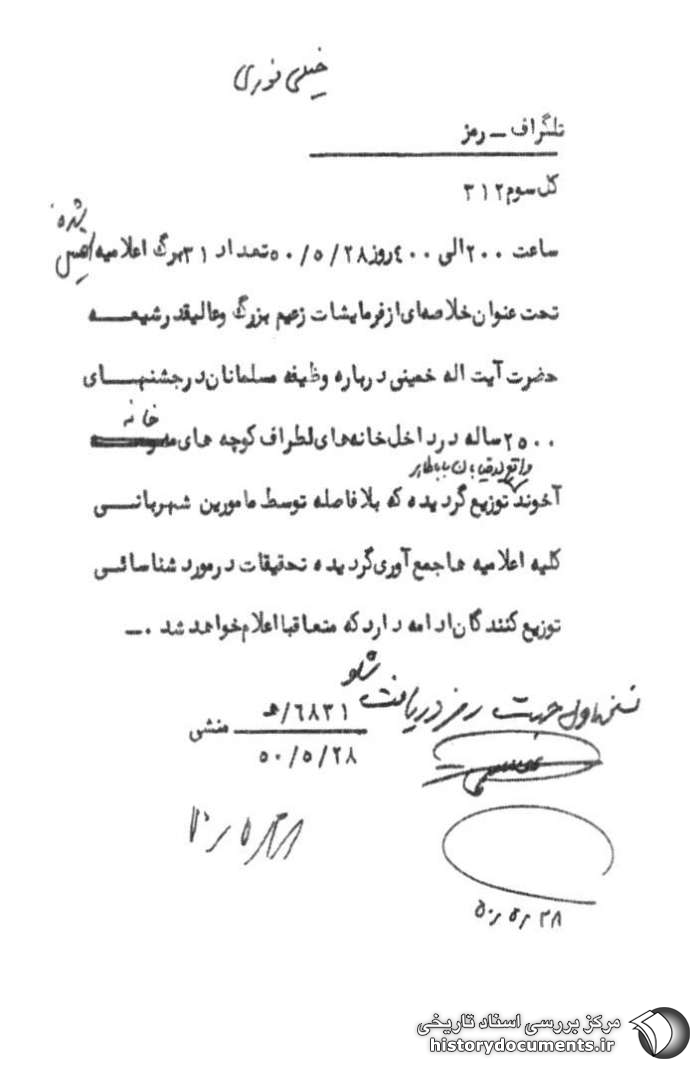 خیلی فوری
تلگراف ـ رمز
کل سوم ۳۱۲
شده
ساعت ۲۰۰ الی ۴۰۰ روز ۵۰/۵/۲۸ تعداد ۳۱ برگ اعلامیه
تحت عنوان خلاصه‌ای از فرمایشات زعیم بزرگ و عالیقدر شیعه
حضرت آیت اله خمینی درباره وظیفه مسلمانان در جشنهای
خانه
۲۵۰۰ ساله در داخل خانه‌های اطراف کوچه های
واقع در خیابان باباطاهر
آخوند توزیع گردیده که بلافاصله توسط مامورین شهربانی
کلیه اعلامیه ها جمع آوری گردیده تحقیقات در مورد شناسائی
توزیع کنندگان ادامه دارد که متعاقبا اعلام خواهد شد .ـ
نسخه اول جهت رمز دریافت شد
۶۸۳۱/هـ
منشی
۵۰/۵/۲۸
۵۰٫۵٫۲۸
مرکز بررسی اسناد تاریخی
historydocuments.ir